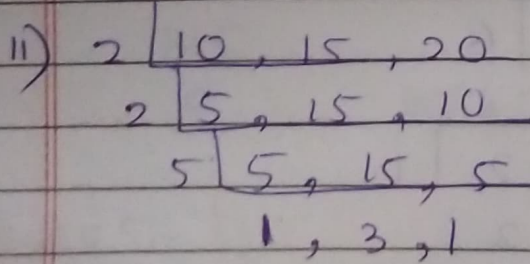 11) 2 | 10, 15, 20
2 | 5, 15, 10
5 | 5, 15, 5
1, 3, 1